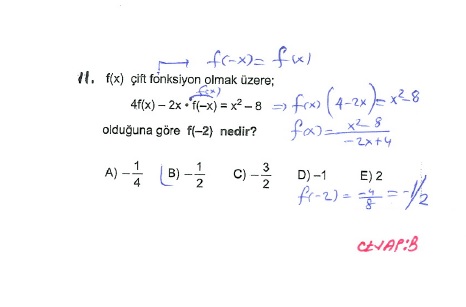 f(-x)= f(x)
11. f(x) çift fonksiyon olmak üzere;
f(x)
4f(x) – 2x • f(–x) = x² – 8 ⇒ f(x) (4-2x) = x²-8
olduğuna göre f(–2) nedir? f(x) = x²-8 / -2x+4
A) –1/4 B) –1/2 C) –3/2 D) –1 E) 2
f(-2) = -4/8 = -1/2
CEVAP:B